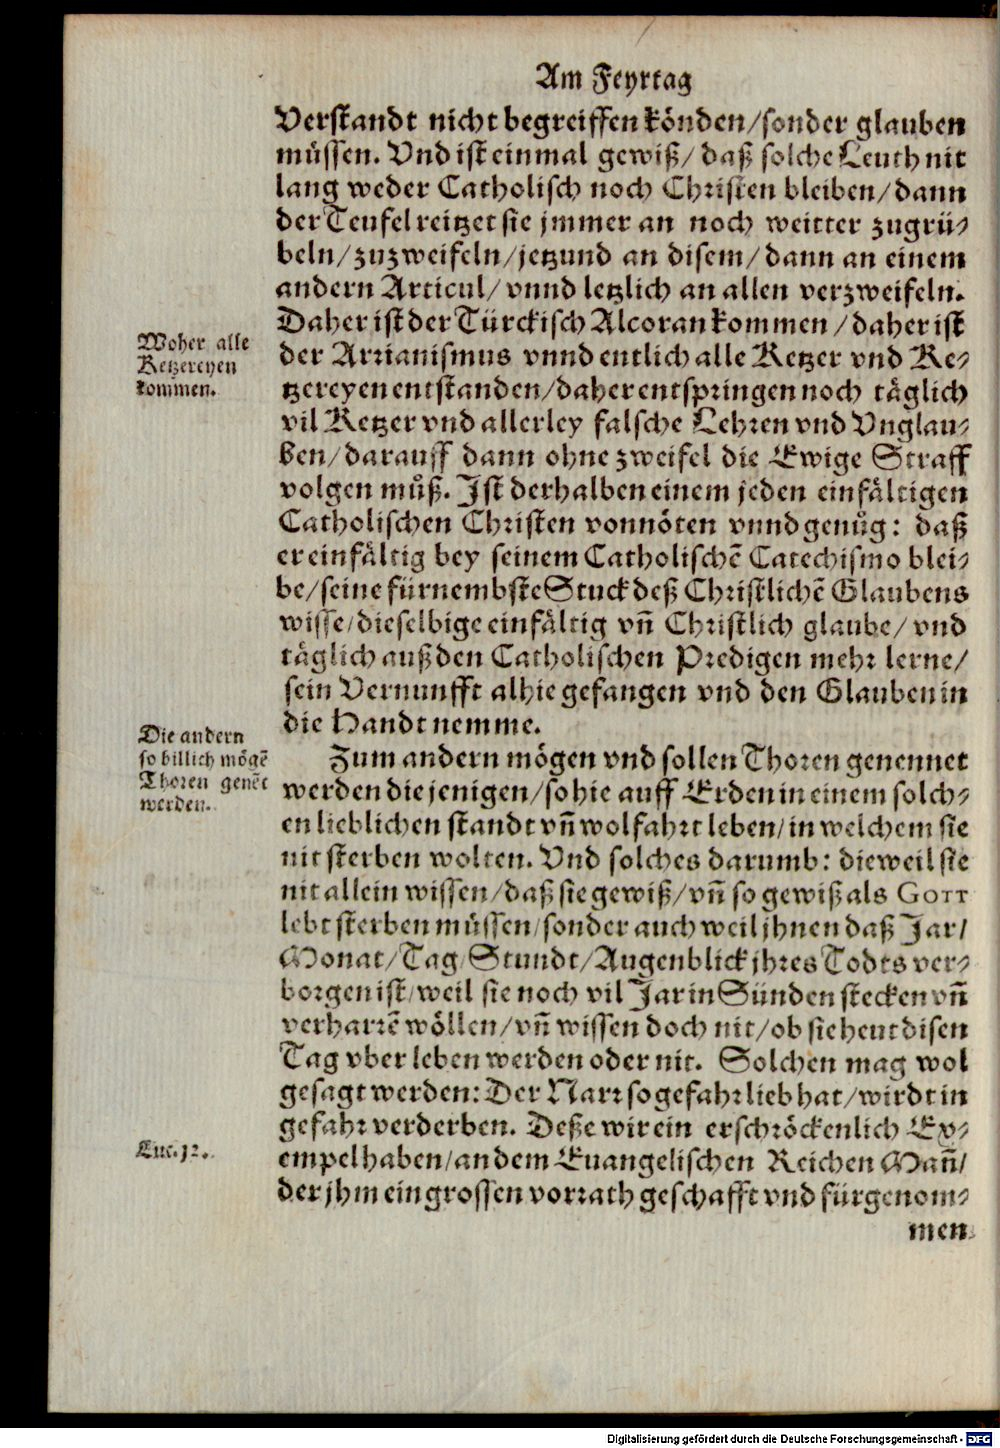 Am Feyrtag
Verstandt nicht begreiffen könden/sonder glauben
müssen. Vnd ist einmal gewiß/ daß solche Leuth nit
lang weder Catholisch noch Christen bleiben/dann
der Teufel reitzet sie jmmer an noch weitter zugrü-
beln/zuzweifeln/jetzund an disem/dann an einem
andern Articul/ vnnd letzlich an allen verzweifeln.
Woher alle
Ketzereyen
kommen.
Daher ist der Türckisch Alcoran kommen/daher ist
der Arrianismus vnnd entlich alle Ketzer vnd Ke-
tzereyen entstanden/daher entspringen noch täglich
vil Ketzer vnd allerley falsche Lehren vnd Vnglau-
ben/darauff dann ohne zweifel die Ewige Straff
volgen můß. Ist derhalben einem jeden einfältigen
Catholischen Christen vonnöten vnnd genůg: daß
er einfältig bey seinem Catholischẽ Catechismo blei-
be/seine fürnembste Stuck deß Christlichẽ Glaubens
wisse/dieselbige einfältig vñ Christlich glaube/ vnd
täglich auß den Catholischen Predigen mehr lerne/
sein Vernunfft alhie gefangen vnd den Glauben in
die Handt nemme.
Die andern
so billich mögẽ
Thoren genẽt
werden.
Zum andern mögen vnd sollen Thoren genennet
werden die jenigen/so hie auff Erden in einem solch-
en lieblichen standt vñ wolfahrt leben/in welchem sie
nit sterben wolten. Vnd solches darumb: dieweil sie
nit allein wissen/daß sie gewiß/vñ so gewiß als GOTT
lebt sterben müssen/sonder auch weil jhnen daß Jar/
Monat/Tag/Stundt/Augenblick jhres Todts ver-
borgen ist/weil sie noch vil Jar in Sünden stecken vñ
verharrẽ wöllen/vñ wissen doch nit/ob sie heut disen
Tag vber leben werden oder nit. Solchen mag wol
gesagt werden: Der Narr so gefahr lieb hat/wirdt in
gefahr verderben. Deße wir ein erschröckenlich Ex-
Luc. 12.
empel haben/an dem Euangelischen Reichen Mañ/
der jhm ein grossen vorrath geschafft vnd fürgenom-
men
Digitalisierung gefördert durch die Deutsche Forschungsgemeinschaft - DFG